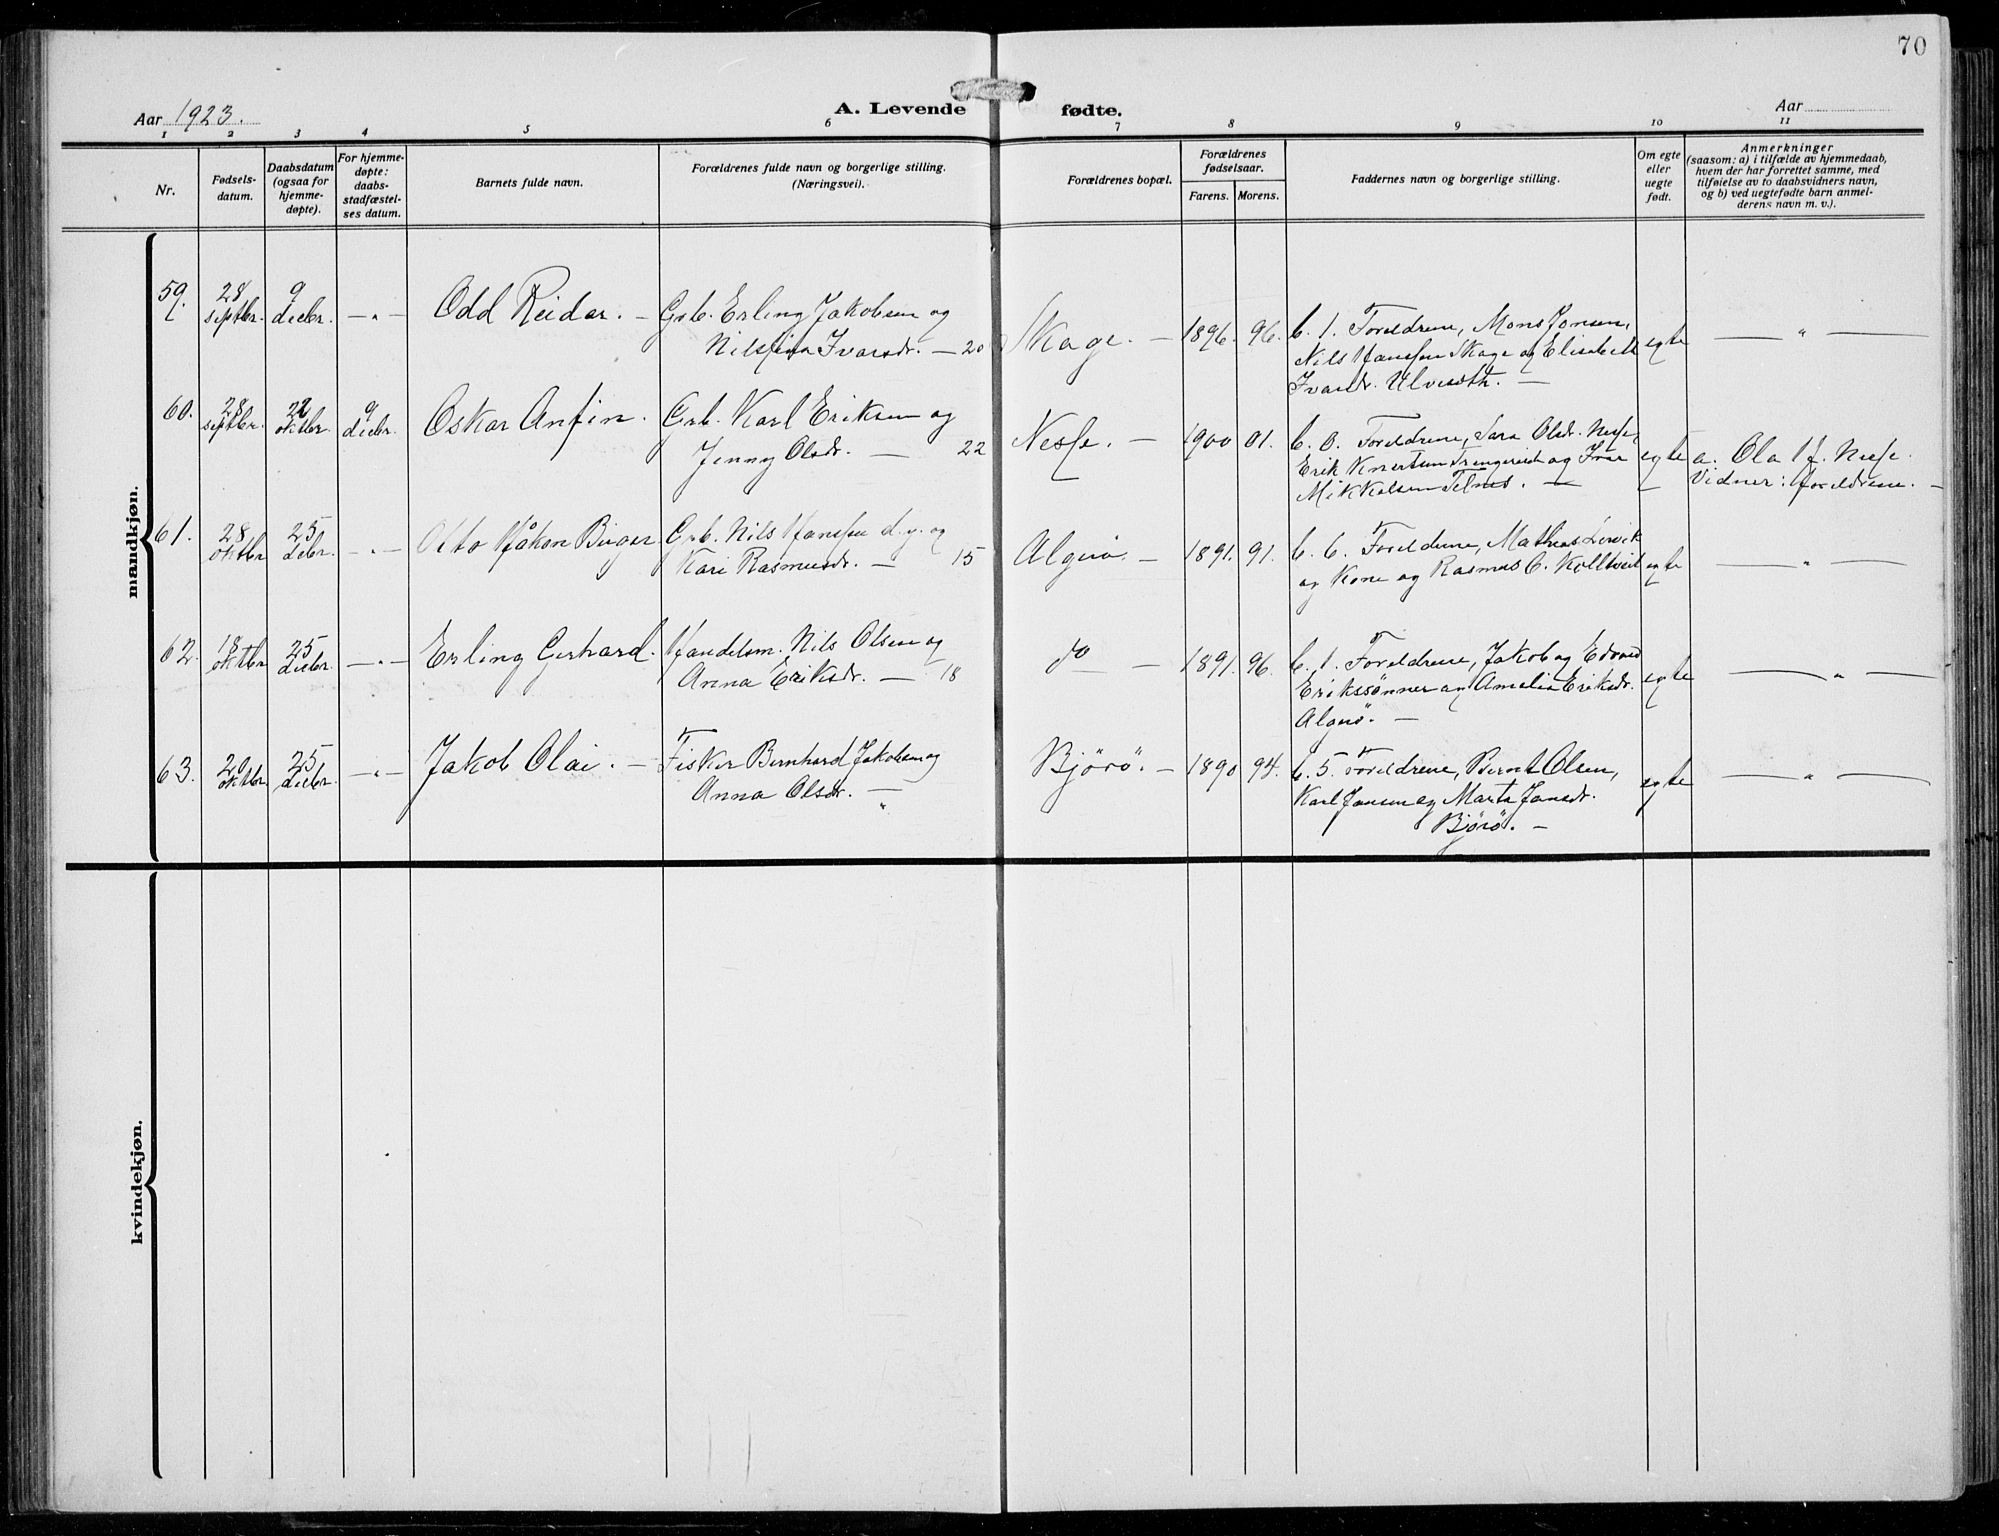 70
Aar 1923.
A. Levende fødte.
Aar
1 2 3 4 5 6 7 8 9 10 11
Nr.
Fødsels-
datum.
Daabsdatum
(ogsaa for
hjemme-
døpte).
For hjemme-
døpte:
daabs-
stadfæstel-
ses datum.
Barnets fulde navn.
Forældrenes fulde navn og borgerlige stilling.
(Næringsvei).
Forældrenes bopæl.
Forældrenes
fødselsaar.
Farens. Morens.
Faddernes navn og borgerlige stilling.
Om egte
eller
uegte
født.
Anmerkninger
(saasom: a) i tilfælde av hjemmedaab,
hvem der har forrettet samme, med
tilføielse av to daabsvidners navn,
og b) ved uegtefødte barn anmel-
derens navn m. v.).
mandkjøn.
59. 28 septbr. 9 decbr. — „ — Odd Reidar. — Grb. Erling Jakobsen og
Nilsfina Ivarsdr. — 20
Skage. — 1896. 96. C. 1. Foreldrene, Mons Jonsen,
Nils Hanssen Skage og Elisabeth
Ivarsdr. Ulveseth. —
egte — „ —
60. 28 septbr. 22 oktbr. 9 decbr. Oskar Anfin. Grb. Karl Eriksen og
Jenny Olsdr. — 22
Nesse. — 1900 01. C. 0. Foreldrene, Sara Olsdr. Nesse,
Erik Knertsen Trengereid og Ivar
Mikkelsen Telnes. —
egte a. Ola H. Nesse.
Vidner: foreldrene. —
61. 28 oktbr 25 decbr. — „ — Otto Håkon Birger Grb. Nils Hanssen d.y. og
Kari Rasmusdr. — 15
Algerö. — 1891. 91. C. 6. Foreldrene, Mathias Lervik
og Kone og Rasmus C. Kolltveit
egte — „ —
62. 18 oktbr 25 decbr. — „ — Erling Gerhard. Handelsm. Nils Olsen og
Anna Eriksdr. — 18
do — 1891. 96. C. 1. Foreldrene, Jakob og Edvard
Erikssönner og Amalia Eriksdr.
Algerö. —
egte — „ —
63. 20 oktbr 25 decbr. — „ — Jakob Olai. — Fisker Bernhard Jakobsen og
Anna Olsdr. — „
Bjørö. — 1890 94. C. 5. Foreldrene, Bernt Olsen,
Karl Jansen og Marta Jansdr.
Bjørö. —
egte — „ —
kvindekjøn.